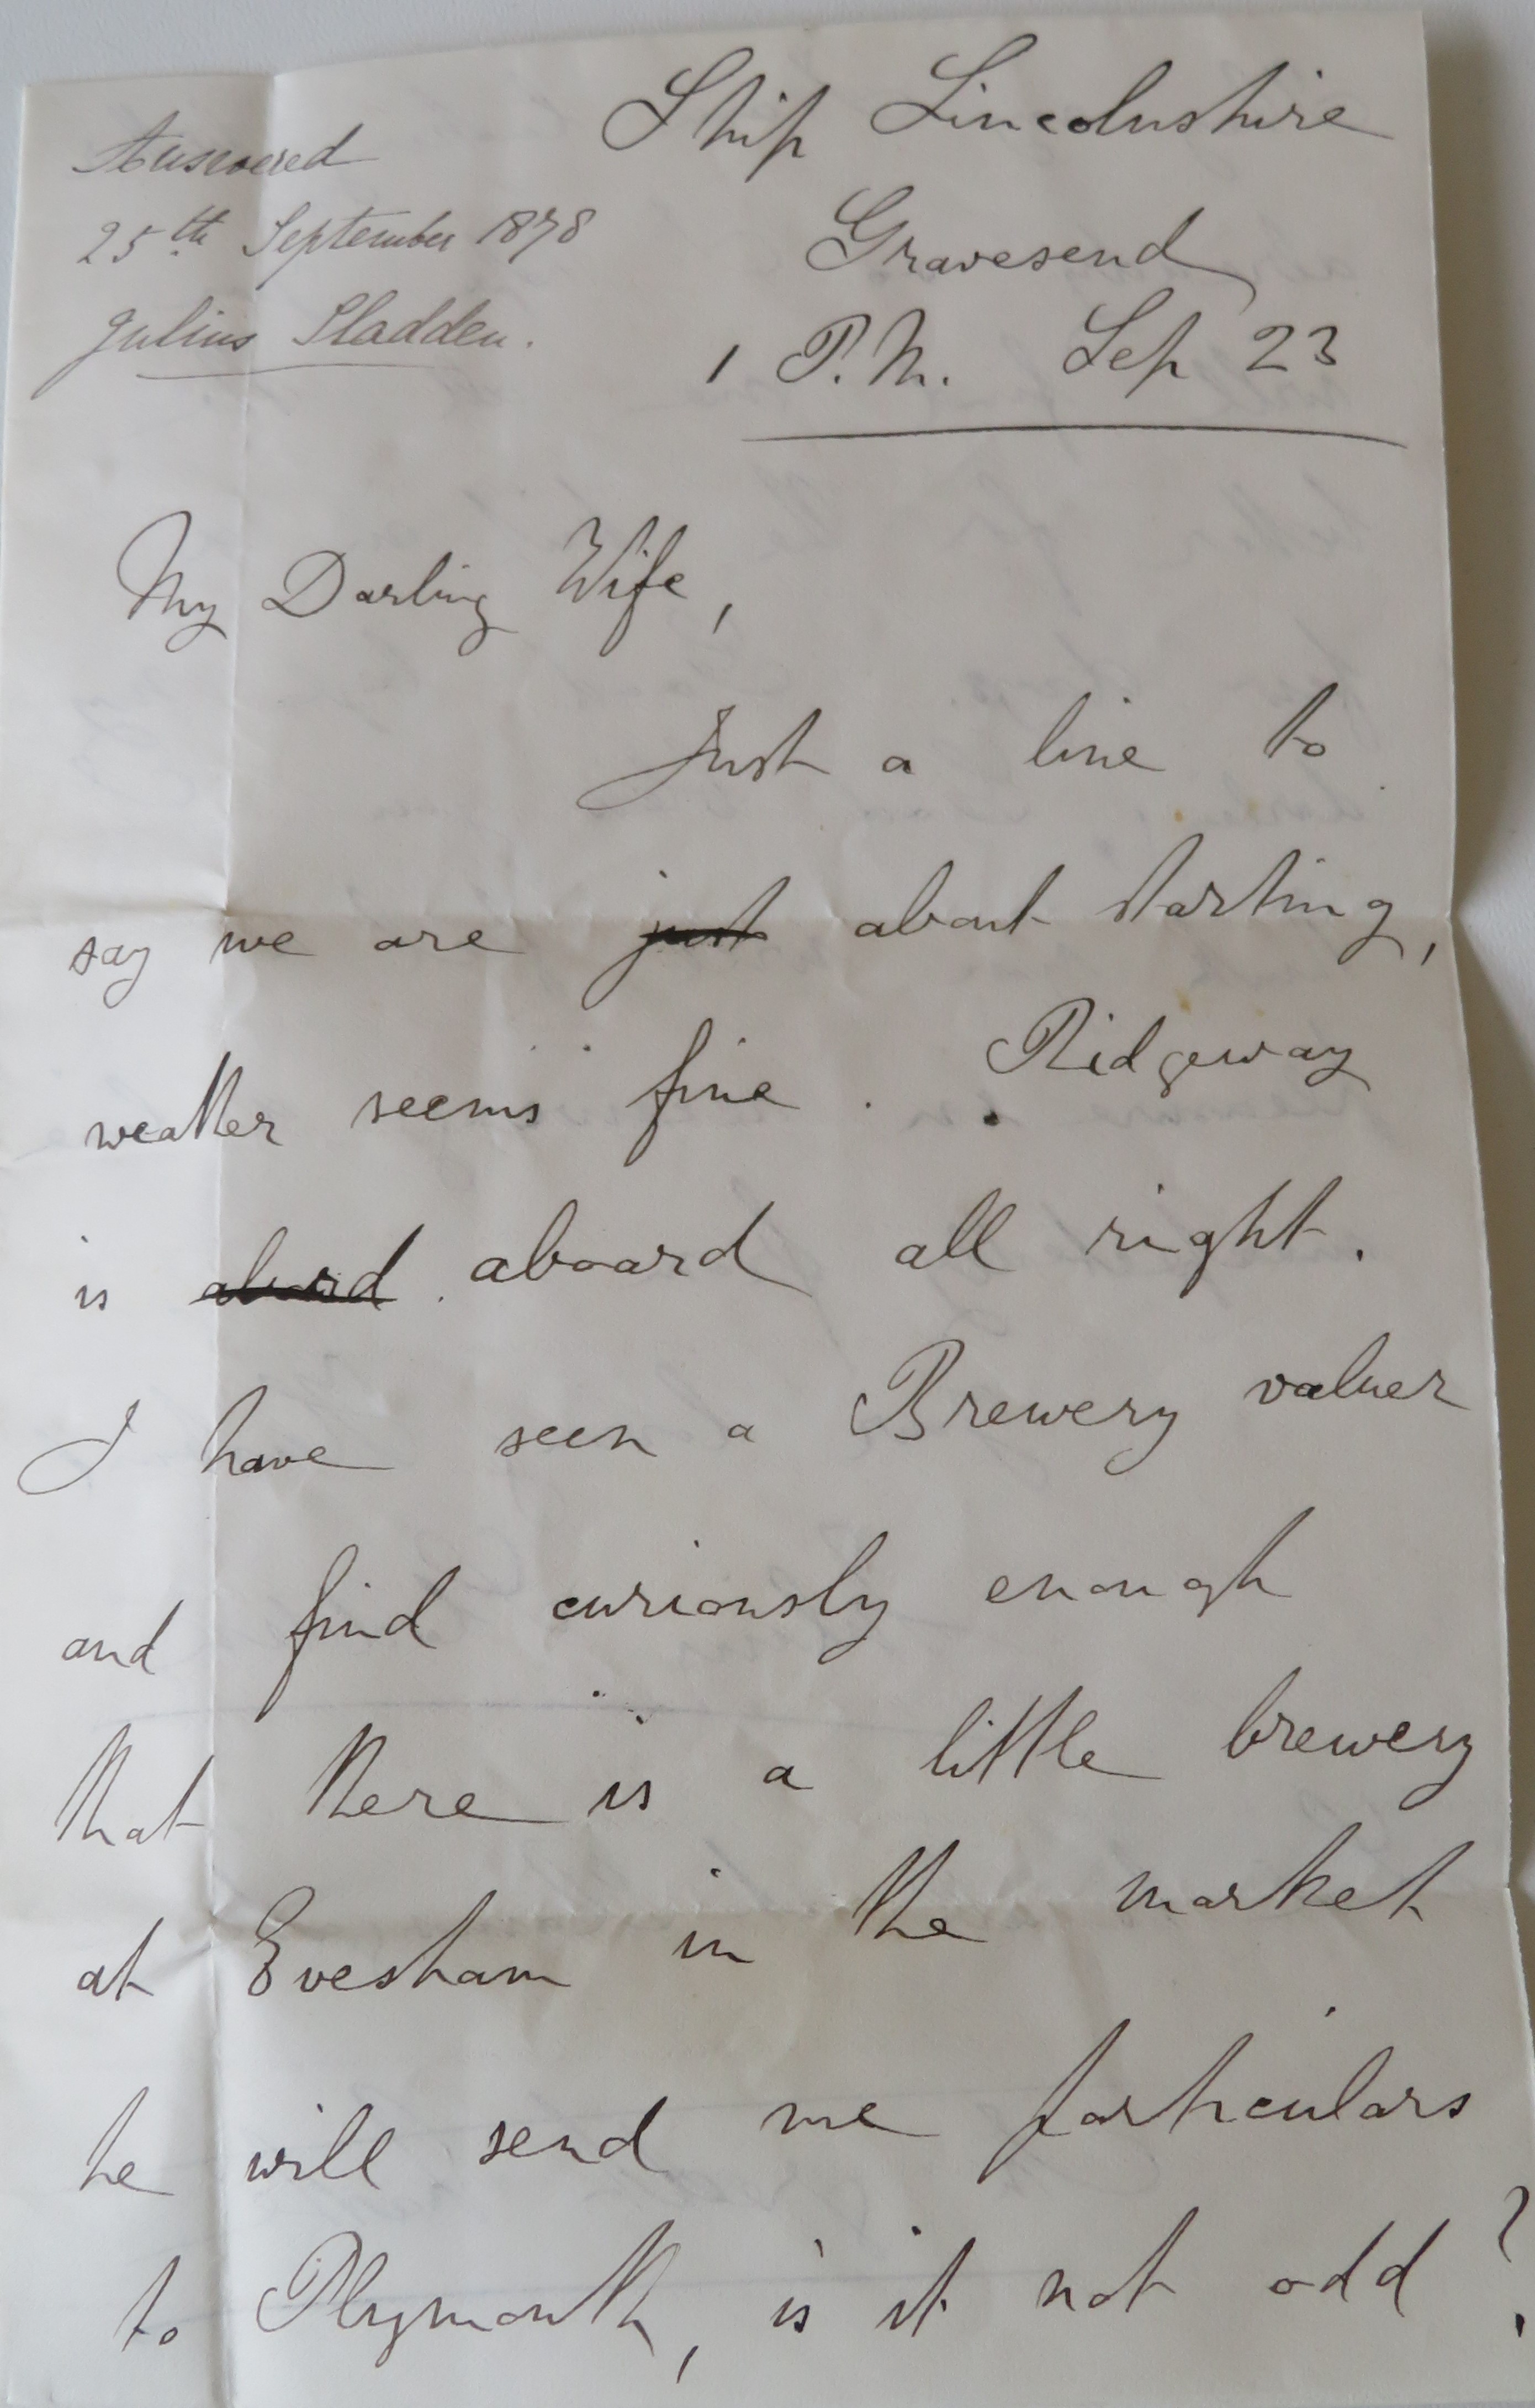 Ship Lincolnshire
Answered
25th September 1878
Julius Sladden.
Gravesend
1 P.M. Sep 23
My Darling Wife,
Just a line to
say we are just about starting,
weather seems fine. Ridgeway
is abord aboard all right.
I have seen a Brewery valuer
and find curiously enough
that there is a little brewery
at Evesham in the market
he will send me particulars
to Plymouth, is it not odd?